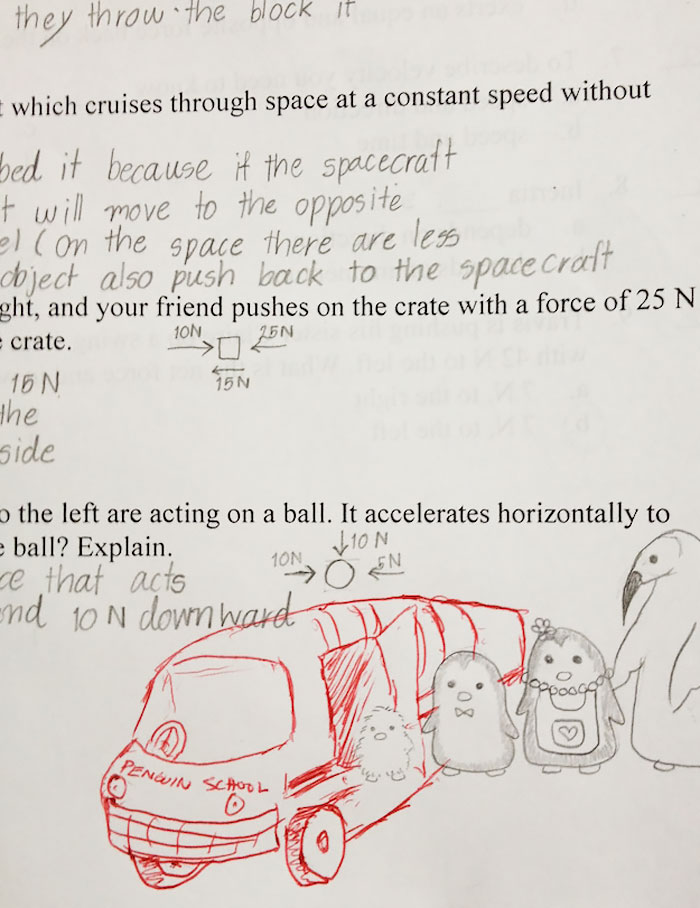 they throw the block it
which cruises through space at a constant speed without
bed it because if the spacecraft
t will move to the opposite
el (on the space there are less
object also push back to the spacecraft
ght, and your friend pushes on the crate with a force of 25 N
e crate.
10N 25N
15N
15 N
the
side
o the left are acting on a ball. It accelerates horizontally to
e ball? Explain.
10N
10N 5N
ce that acts
and 10 N downward
PENGUIN SCHOOL